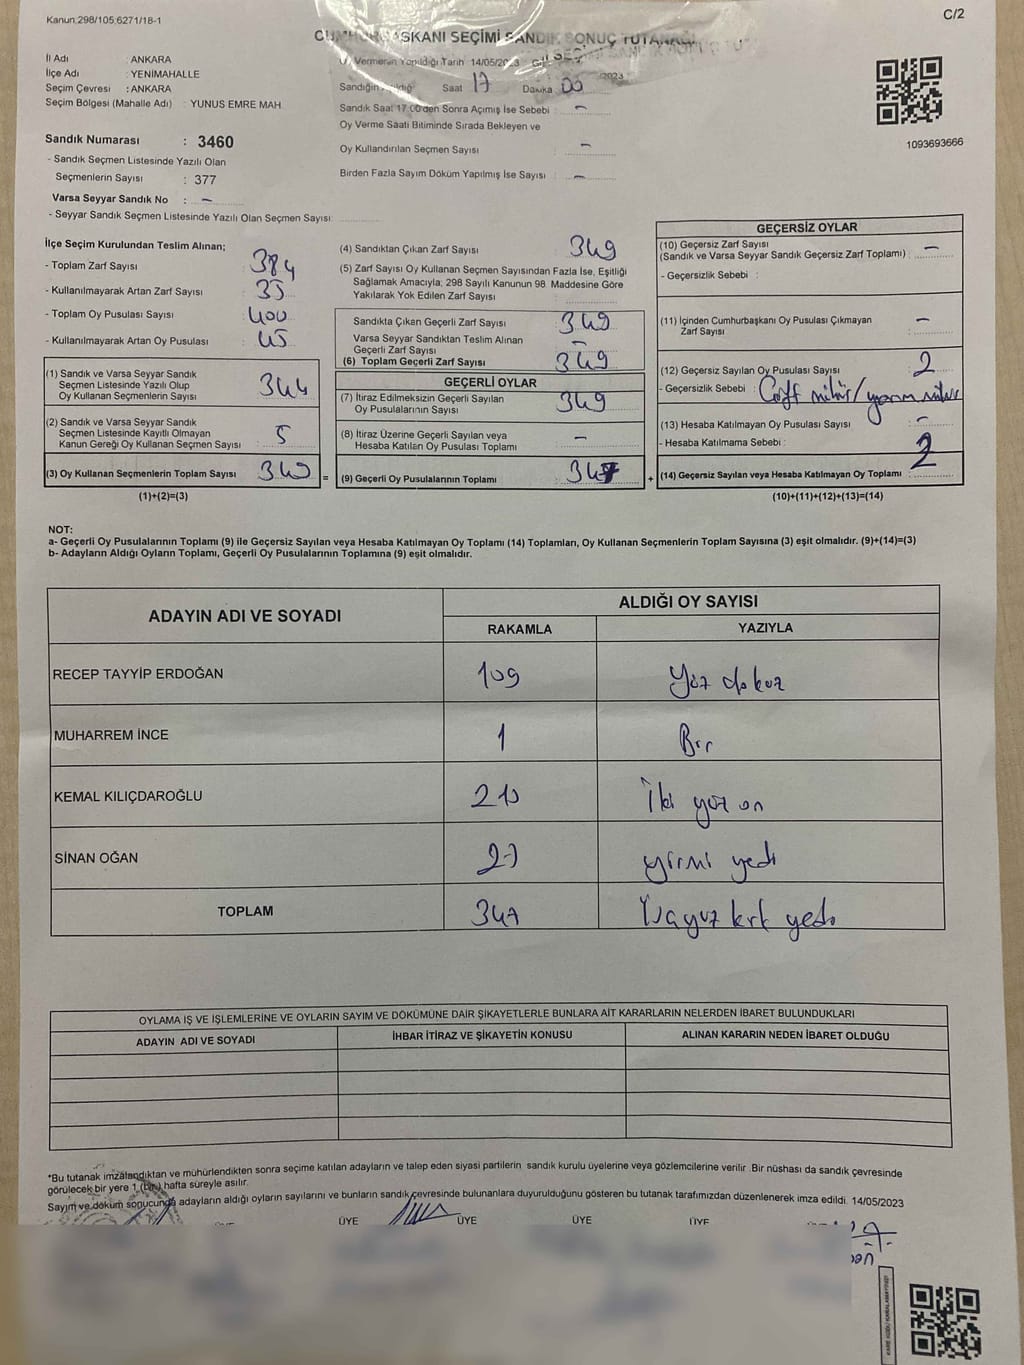 Kanun.298/105.6271/18-1
C/2
CUMHURBAŞKANI SEÇİMİ SANDIK SONUÇ TUTANAĞI
İl Adı : ANKARA
İlçe Adı : YENİMAHALLE
Seçim Çevresi : ANKARA
Seçim Bölgesi (Mahalle Adı) : YUNUS EMRE MAH
Oy Vermenin Yapıldığı Tarih 14/05/2023
Saat 17 Dakika 00
Sandık Saat 17:00'den Sonra Açımış İse Sebebi : -
Oy Verme Saati Bitiminde Sırada Bekleyen ve
Oy Kullandırılan Seçmen Sayısı : -
Birden Fazla Sayım Döküm Yapılmış İse Sayısı : -
1093693666
Sandık Numarası : 3460
- Sandık Seçmen Listesinde Yazılı Olan
Seçmenlerin Sayısı : 377
Varsa Seyyar Sandık No : -
- Seyyar Sandık Seçmen Listesinde Yazılı Olan Seçmen Sayısı:
İlçe Seçim Kurulundan Teslim Alınan;
- Toplam Zarf Sayısı : 384
- Kullanılmayarak Artan Zarf Sayısı : 35
- Toplam Oy Pusulası Sayısı : 400
- Kullanılmayarak Artan Oy Pusulası : 45
(1) Sandık ve Varsa Seyyar Sandık
Seçmen Listesinde Yazılı Olup
Oy Kullanan Seçmenlerin Sayısı : 344
(2) Sandık ve Varsa Seyyar Sandık
Seçmen Listesinde Kayıtlı Olmayan
Kanun Gereği Oy Kullanan Seçmen Sayısı : 5
(3) Oy Kullanan Seçmenlerin Toplam Sayısı : 349 =
(1)+(2)=(3)
(4) Sandıktan Çıkan Zarf Sayısı : 349
(5) Zarf Sayısı Oy Kullanan Seçmen Sayısından Fazla İse, Eşitliği
Sağlamak Amacıyla; 298 Sayılı Kanunun 98. Maddesine Göre
Yakılarak Yok Edilen Zarf Sayısı
Sandıkta Çıkan Geçerli Zarf Sayısı : 349
Varsa Seyyar Sandıktan Teslim Alınan
Geçerli Zarf Sayısı : -
(6) Toplam Geçerli Zarf Sayısı : 349
GEÇERLİ OYLAR
(7) İtiraz Edilmeksizin Geçerli Sayılan
Oy Pusulalarının Sayısı : 349
(8) İtiraz Üzerine Geçerli Sayılan veya
Hesaba Katılan Oy Pusulası Toplamı : -
(9) Geçerli Oy Pusulalarının Toplamı : 347 +
GEÇERSİZ OYLAR
(10) Geçersiz Zarf Sayısı
(Sandık ve Varsa Seyyar Sandık Geçersiz Zarf Toplamı) : -
- Geçersizlik Sebebi :
(11) İçinden Cumhurbaşkanı Oy Pusulası Çıkmayan
Zarf Sayısı : -
(12) Geçersiz Sayılan Oy Pusulası Sayısı : 2
- Geçersizlik Sebebi : Çift mühür/yarım mühür
(13) Hesaba Katılmayan Oy Pusulası Sayısı : -
- Hesaba Katılmama Sebebi :
(14) Geçersiz Sayılan veya Hesaba Katılmayan Oy Toplamı : 2
(10)+(11)+(12)+(13)=(14)
NOT:
a- Geçerli Oy Pusulalarının Toplamı (9) ile Geçersiz Sayılan veya Hesaba Katılmayan Oy Toplamı (14) Toplamları, Oy Kullanan Seçmenlerin Toplam Sayısına (3) eşit olmalıdır. (9)+(14)=(3)
b- Adayların Aldığı Oyların Toplamı, Geçerli Oy Pusulalarının Toplamına (9) eşit olmalıdır.
ADAYIN ADI VE SOYADI
ALDIĞI OY SAYISI
RAKAMLA YAZIYLA
RECEP TAYYİP ERDOĞAN 109 Yüz dokuz
MUHARREM İNCE 1 Bir
KEMAL KILIÇDAROĞLU 210 İki yüz on
SİNAN OĞAN 27 yirmi yedi
TOPLAM 347 Üçyüz kırk yedi
OYLAMA İŞ VE İŞLEMLERİNE VE OYLARIN SAYIM VE DÖKÜMÜNE DAİR ŞİKAYETLERLE BUNLARA AİT KARARLARIN NELERDEN İBARET BULUNDUKLARI
ADAYIN ADI VE SOYADI
İHBAR İTİRAZ VE ŞİKAYETİN KONUSU
ALINAN KARARIN NEDEN İBARET OLDUĞU
*Bu tutanak imzalandıktan ve mühürlendikten sonra seçime katılan adayların ve talep eden siyasi partilerin sandık kurulu üyelerine veya gözlemcilerine verilir. Bir nüshası da sandık çevresinde
görülecek bir yere 1 (bir) hafta süreyle asılır.
Sayım ve döküm sonucunda adayların aldığı oyların sayılarını ve bunların sandık çevresinde bulunanlara duyurulduğunu gösteren bu tutanak tarafımızdan düzenlenerek imza edildi. 14/05/2023
ÜYE ÜYE ÜYE ÜYE